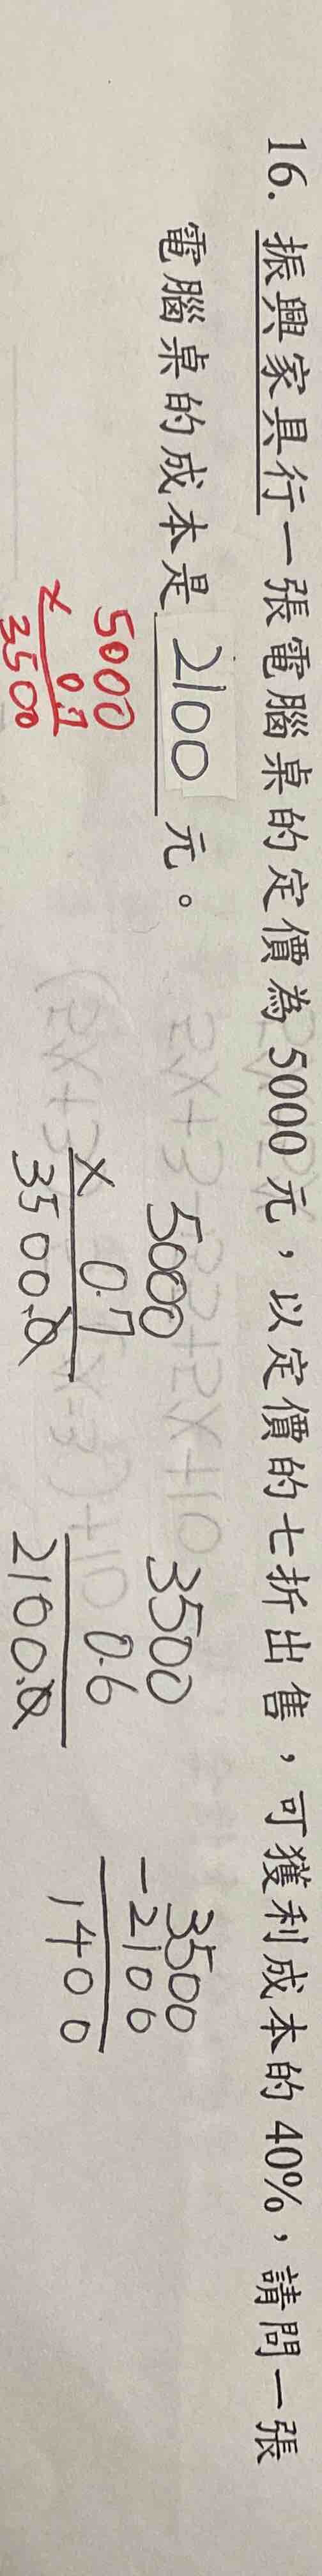 16. 振興家具行一張電腦桌的定價為 5000 元，以定價的七折出售，可獲利成本的 40%，請問一張
電腦桌的成本是 2100 元。
5000
× 0.7
3500
5000
× 0.7
3500.0
3500
0.6
2100.0
3500
-2100
1400